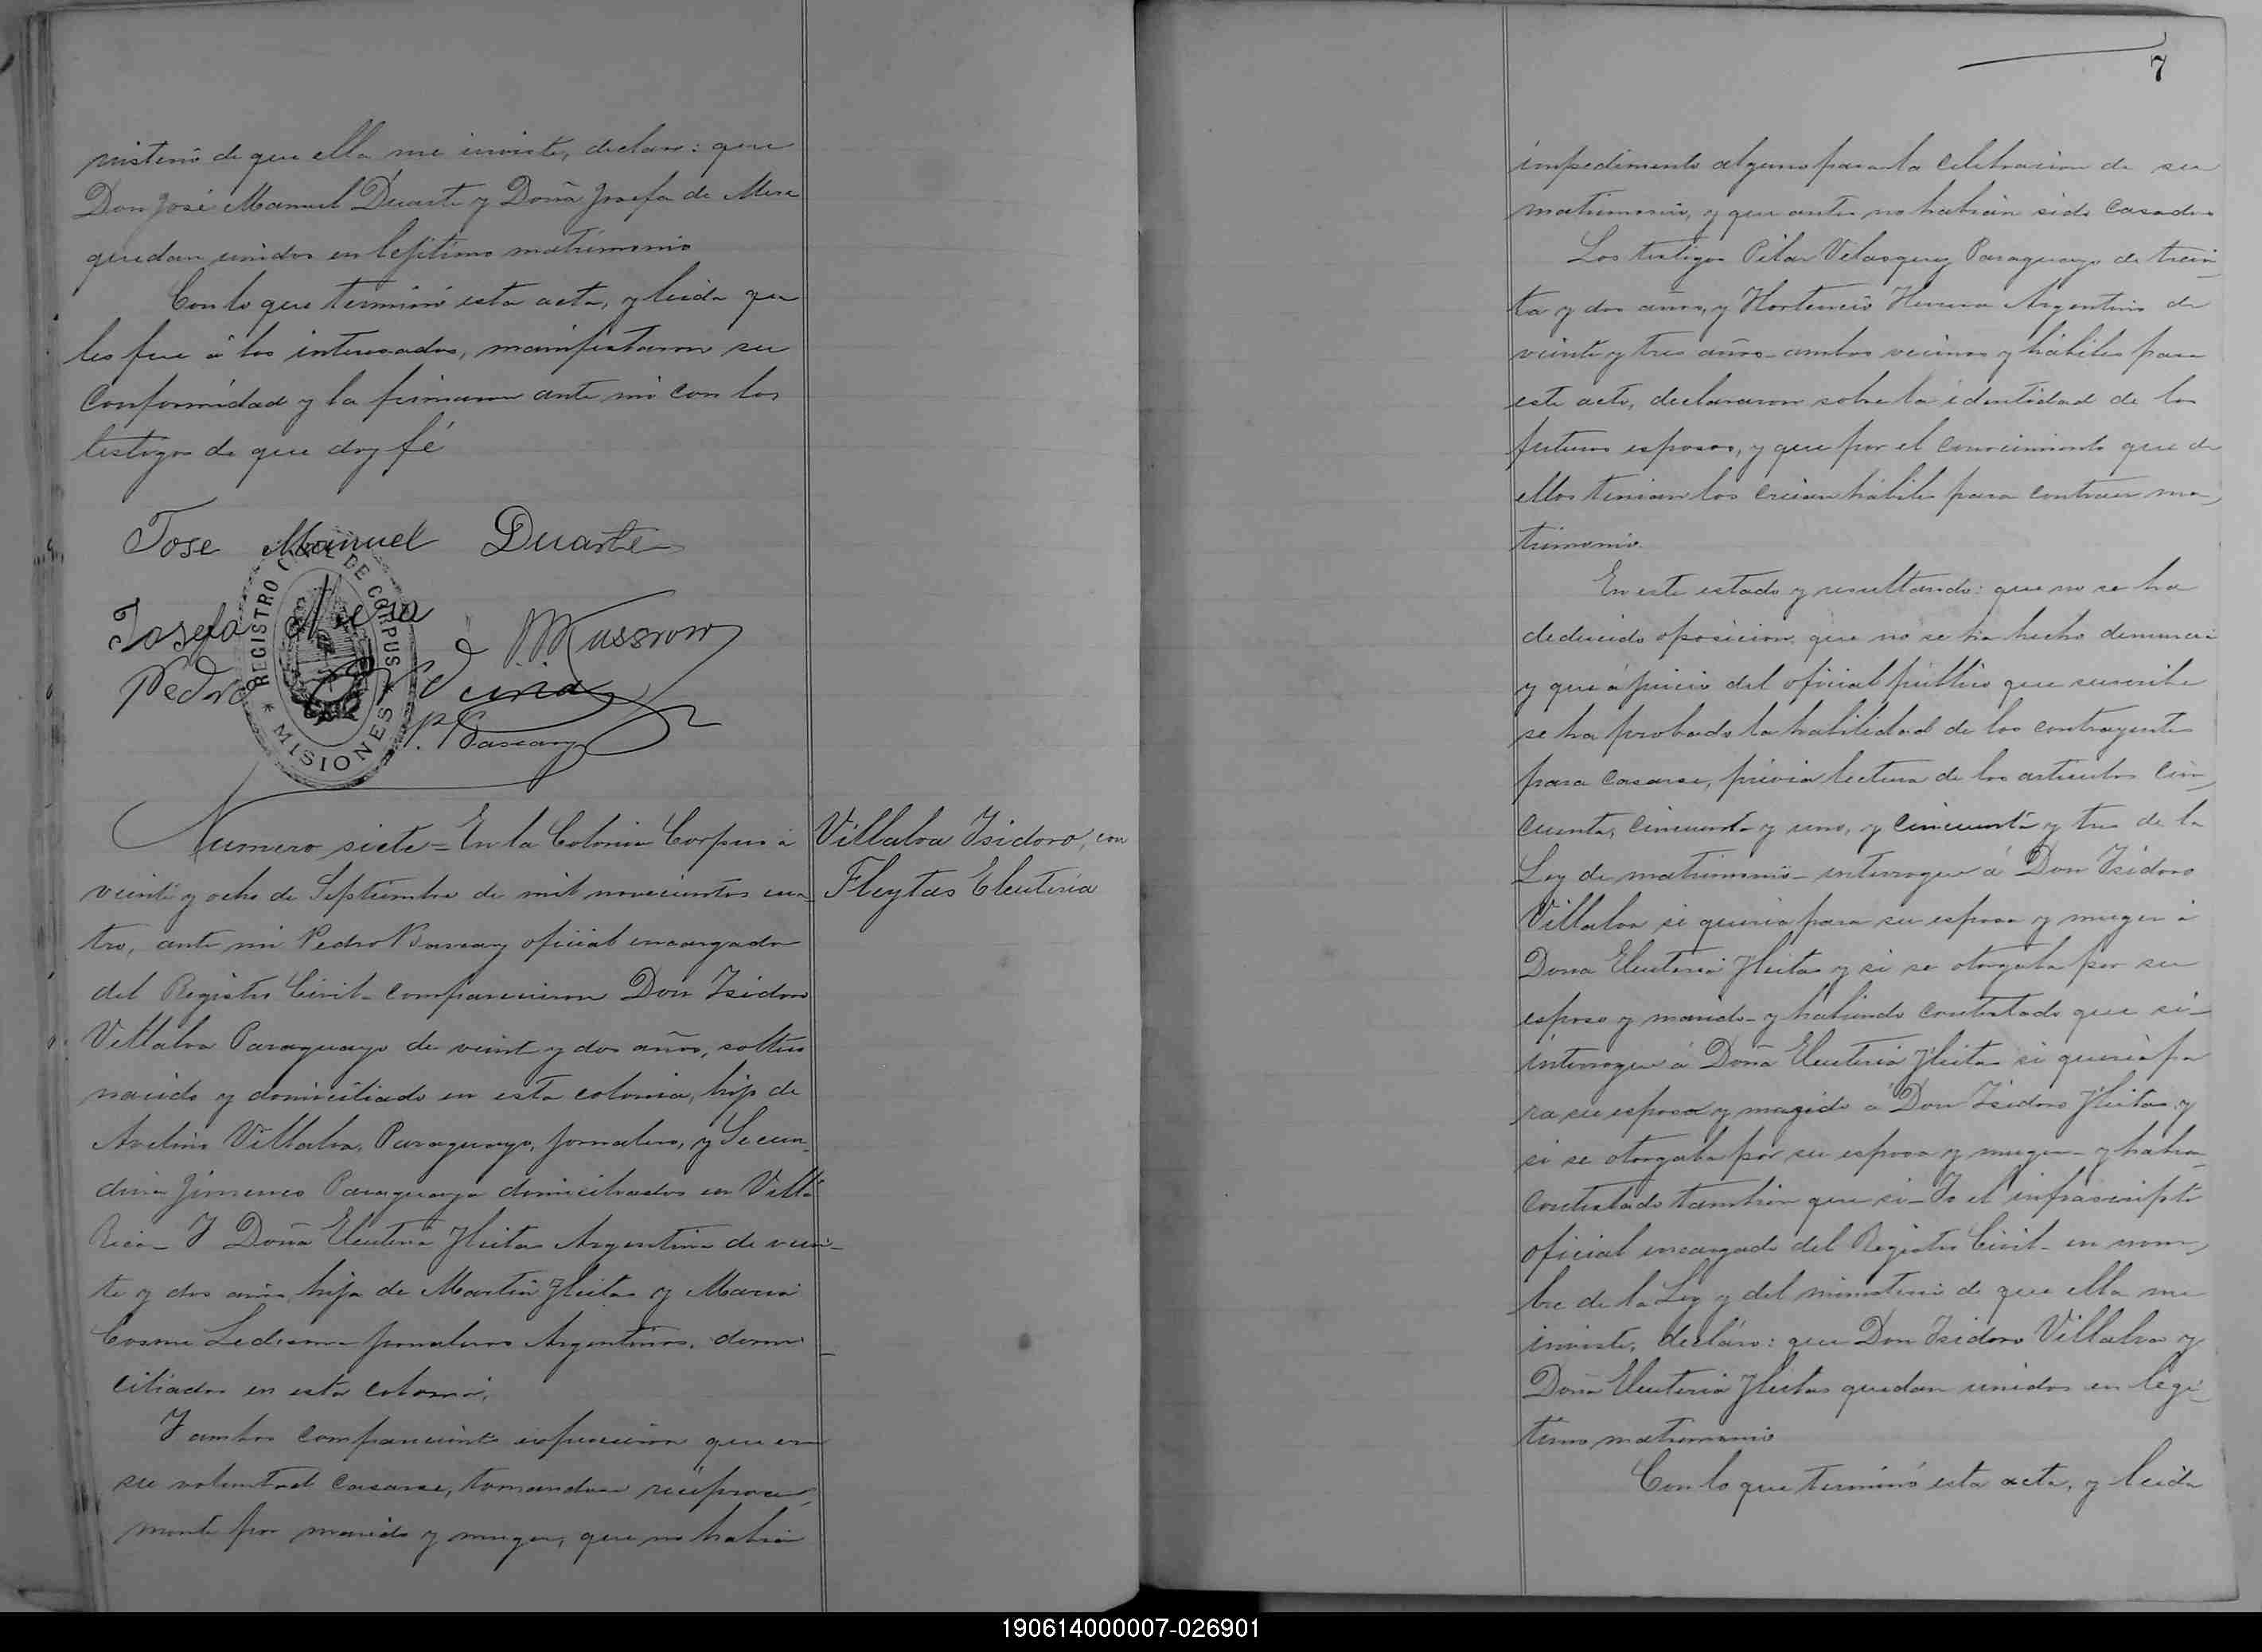 nisterio de que ella me inviste, declaro: que
Don José Manuel Duarte y Doña Josefa de Mesa
quedan unidos en lejitimo matrimonio
Con lo que terminó esta acta, y leida que
les fue á los interesados, manifestaron su
conformidad y la firmaron ante mi con los
testigos de que doy fé
Jose Manuel Duarte
Josefa Mesa
Pedro
P. Bascary
REGISTRO CIVIL DE CORPUS
* MISIONES *
Numero siete = En la Colonia Corpus á
veinte y ocho de Septiembre de mil novecientos cua
tro, ante mi Pedro Bascary oficial encargado
del Registro Civil - comparecieron Don Isidoro
Villalva Paraguayo de veinte y dos años, soltero
nacido y domiciliado en esta colonia, hijo de
Avelino Villalva, Paraguayo, jornalero, y Secun-
dina Jimenes Paraguaya domiciliados en Villa
Rica - Y Doña Eleuteria Fleitas Argentina de vein-
te y dos años hija de Martin Fleitas y Maria
Cosme Ledesma jornaleros Argentinos, domi-
ciliados en esta colonia.
Y ambos comparecientes expusieron que era
su voluntad casarse, tomandose reciproca-
mente por marido y muger, que no habia
Villalva Isidoro, con
Fleytas Eleuteria
7
impedimento alguno para la celebracion de su
matrimonio, y que antes no habian sido casados
Los testigos Pilar Velasquez Paraguayo de trein-
ta y dos años, y Hortencio Herrera Argentino de
veinte y tres años - ambos vecinos y hábiles para
este acto, declararon sobre la identidad de los
futuros esposos, y que por el conocimiento que de
ellos tenian los creian hábiles para contraer ma-
trimonio.
En este estado y resultando: que no se ha
deducido oposicion, que no se ha hecho denuncia
y que á juicio del oficial público que suscribe
se ha probado la habilidad de los contrayentes
para casarse, previa lectura de los articulos cin-
cuenta, cincuenta y uno, y cincuenta y tres de la
Ley de matrimonio - interrogue á Don Isidoro
Villalva si queria para su esposa y muger á
Doña Eleuteria Fleitas y si se otorgaba por su
esposo y marido - y habiendo contestado que si -
interrogue á Doña Eleuteria Fleitas si queria pa
ra su esposo y marido á Don Isidoro Fleitas y
si se otorgaba por su esposa y muger - y habia-
contestado tambien que si - Yo el infrascripto
oficial encargado del Registro Civil - en nom-
bre de la Ley y del ministerio de que ella me
inviste, declaro: que Don Isidoro Villalva y
Doña Eleuteria Fleitas quedan unidos en legi-
timo matrimonio
Con lo que terminó esta acta, y leida
190614000007-026901